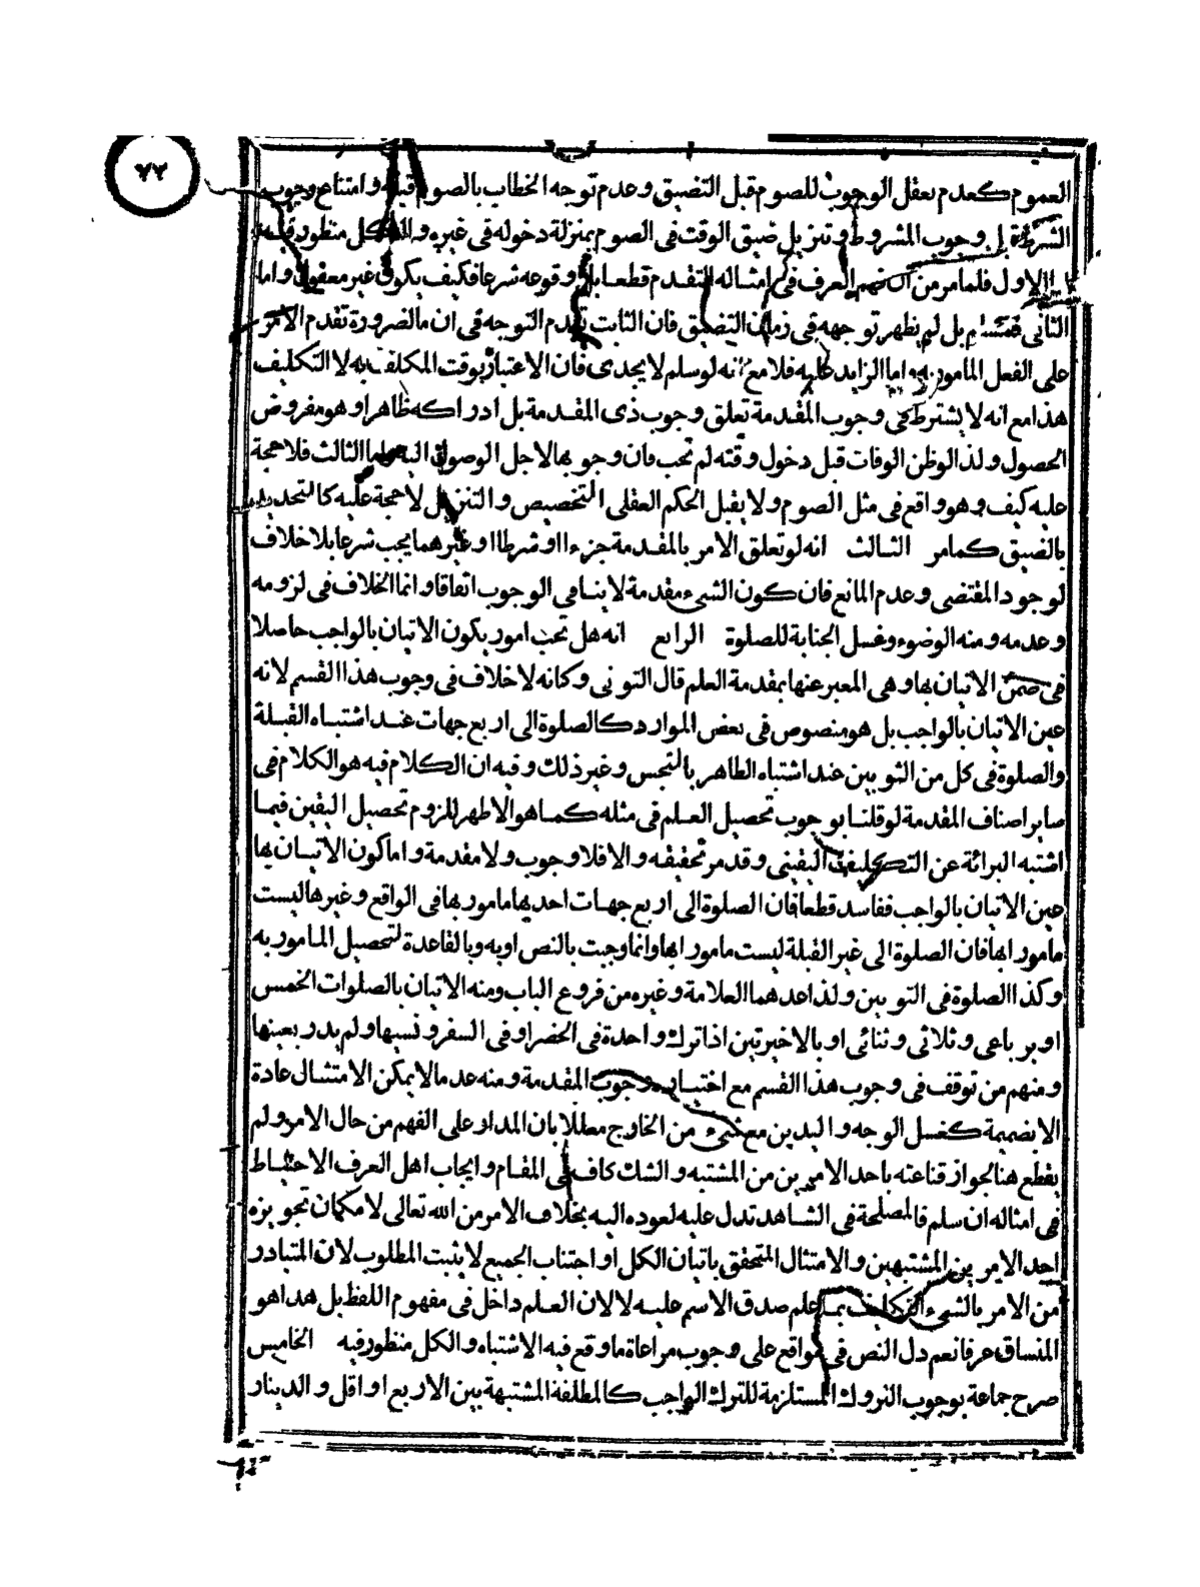 ٧٢
العموم كعدم تعقل الوجوب للصوم قبل التضيق وعدم توجه الخطاب بالصوم قبله وامتناع وجوب
الشرط قبل وجوب المشروط وتنزيل ضيق الوقت فى الصوم بمنزلة دخوله فى غيره والكل منظور فيه
اما الاول فلما مر من ان فهم العرف فى امثاله التقدم قطعا بل وقوعه شرعا فكيف يكون غير معقول واما
الثانى بل لم يظهر توجهه فى زمان التضيق فان الثابت تقدم التوجه فى ان ما لضرورة تقدم الامر
على الفعل المامور به واما الزايد عليه فلا مع انه لو سلم لا يجدى فان الاعتبار بوقت المكلف به لا التكليف
هذا مع انه لا يشترط فى وجوب المقدمة تعلق وجوب ذى المقدمة بل ادراكه ظاهرا وهو مفروض
الحصول ولذا لو ظن الوفات قبل دخول وقته لم تجب فان وجوبها لاجل الوصول اليه واما الثالث فلا حجة
عليه كيف وهو واقع فى مثل الصوم ولا يقبل الحكم العقلى التخصيص والتنزيل لا حجة عليه كالتحديد
بالضيق كما مر الثالث انه لو تعلق الامر بالمقدمة جزءا او شرطا او غيرهما يجب شرعا بلا خلاف
لوجود المقتضى وعدم المانع فان كون الشىء مقدمة لا ينافى الوجوب اتفاقا وانما الخلاف فى لزومه
وعدمه ومنه الوضوء وغسل الجنابة للصلوة الرابع انه هل تجب امور يكون الاتيان بالواجب حاصلا
فى ضمن الاتيان بها وهى المعبر عنها بمقدمة العلم قال التونى وكانه لا خلاف فى وجوب هذا القسم لانه
عين الاتيان بالواجب بل هو منصوص فى بعض الموارد كالصلوة الى اربع جهات عند اشتباه القبلة
والصلوة فى كل من الثوبين عند اشتباه الطاهر بالنجس وغير ذلك وفيه ان الكلام فيه هو الكلام فى
ساير اصناف المقدمة لو قلنا بوجوب تحصيل العلم فى مثله كما هو الاظهر للزوم تحصيل اليقين فيما
اشتبه البرائة عن التكليف اليقينى وقد مر تحقيقه والا فلا وجوب ولا مقدمة واما كون الاتيان بها
عين الاتيان بالواجب ففاسد قطعا فان الصلوة الى اربع جهات احديها مامور بها فى الواقع وغيرها ليست
مامورا بها فان الصلوة الى غير القبلة ليست مامورا بها وانما وجبت بالنص او به وبالقاعدة لتحصيل المامور به
وكذا الصلوة فى الثوبين ولذا عدهما العلامة وغيره من فروع الباب ومنه الاتيان بالصلوات الخمس
او برباعى وثلاثى وثنائى او بالاخيرتين اذا ترك واحدة فى الحضر او فى السفر ونسيها ولم يدر بعينها
ومنهم من توقف فى وجوب هذا القسم مع اختياره وجوب المقدمة ومنه عد ما لا يمكن الامتثال عادة
الا بضميمة كغسل الوجه واليدين مع شىء من الخارج معللا بان المدار على الفهم من حال الامر ولم
يقطع هنا لجواز قناعته باحد الامرين من المشتبه والشك كاف فى المقام وايجاب اهل العرف الاحتياط
فى امثاله ان سلم فالمصلحة فى الشاهد تدل عليه لعوده اليه بخلاف الامر من الله تعالى لامكان تجويزه
احد الامرين المشتبهين والامتثال المتحقق باتيان الكل او اجتناب الجميع لا يثبت المطلوب لان المتبادر
من الامر بالشىء التكليف بما علم صدق الاسم عليه لا لان العلم داخل فى مفهوم اللفظ بل هذا هو
المنساق عرفا نعم دل النص فى مواقع على وجوب مراعاة ما وقع فيه الاشتباه والكل منظور فيه الخامس
صرح جماعة بوجوب التروك المستلزمة للترك الواجب كالمطلقة المشتبهة بين الاربع او اقل والدينار